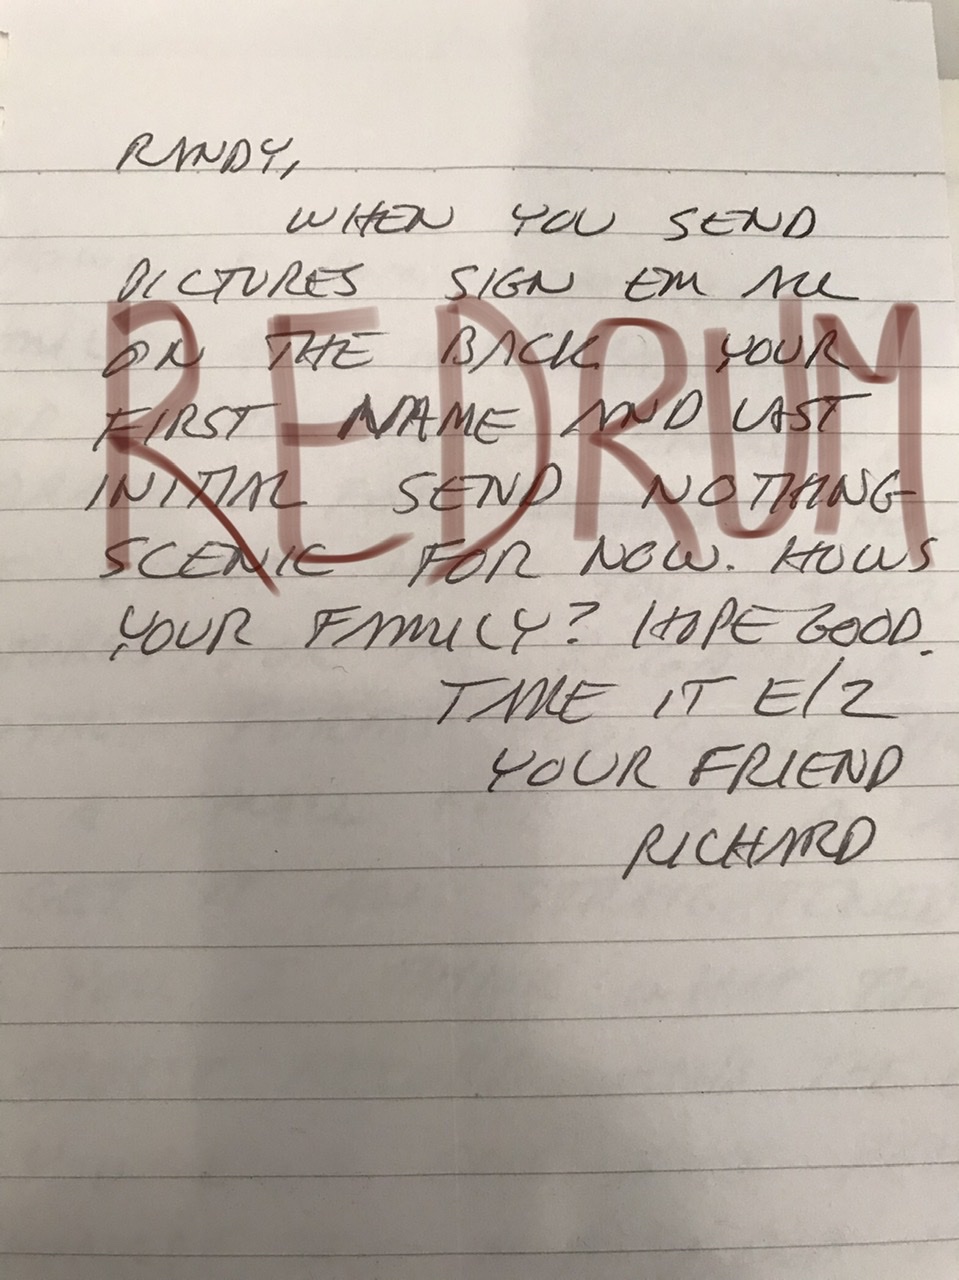 RANDY,
WHEN YOU SEND
PICTURES SIGN EM ALL
ON THE BACK YOUR
REDRUM
FIRST NAME AND LAST
INITIAL SEND NOTHING
SCENIC FOR NOW. HOWS
YOUR FAMILY? HOPE GOOD.
TAKE IT E/Z
YOUR FRIEND
RICHARD